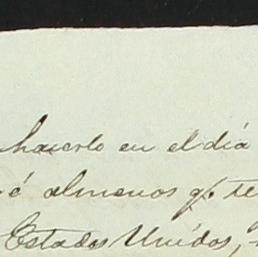 hacerlo en el dia
é almenos qe te
Estados Unidos,